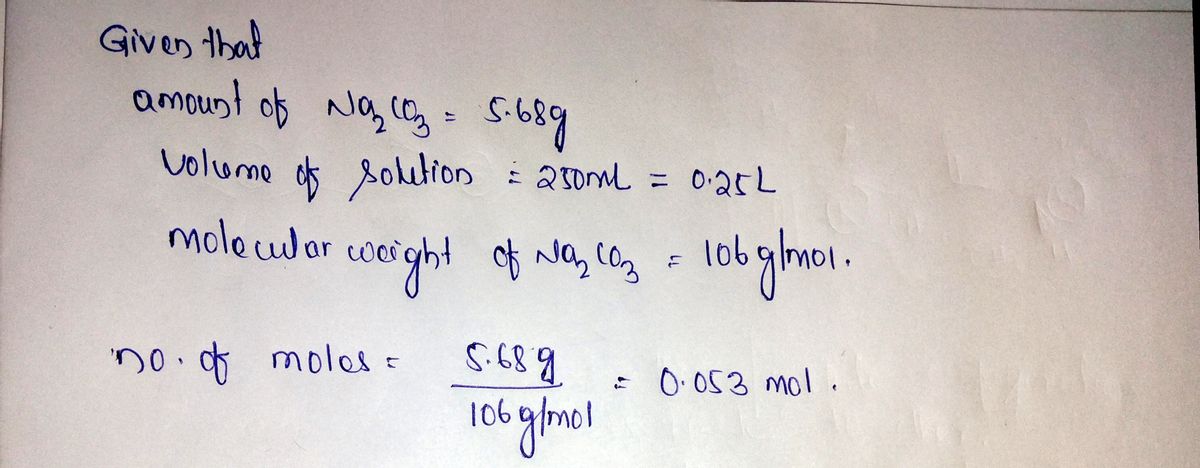 Given that
amount of Na₂CO₃ = 5.68g
volume of solution = 250mL = 0.25L
molecular weight of Na₂CO₃ = 106 g/mol.
no. of moles = 5.68 g / 106 g/mol = 0.053 mol.